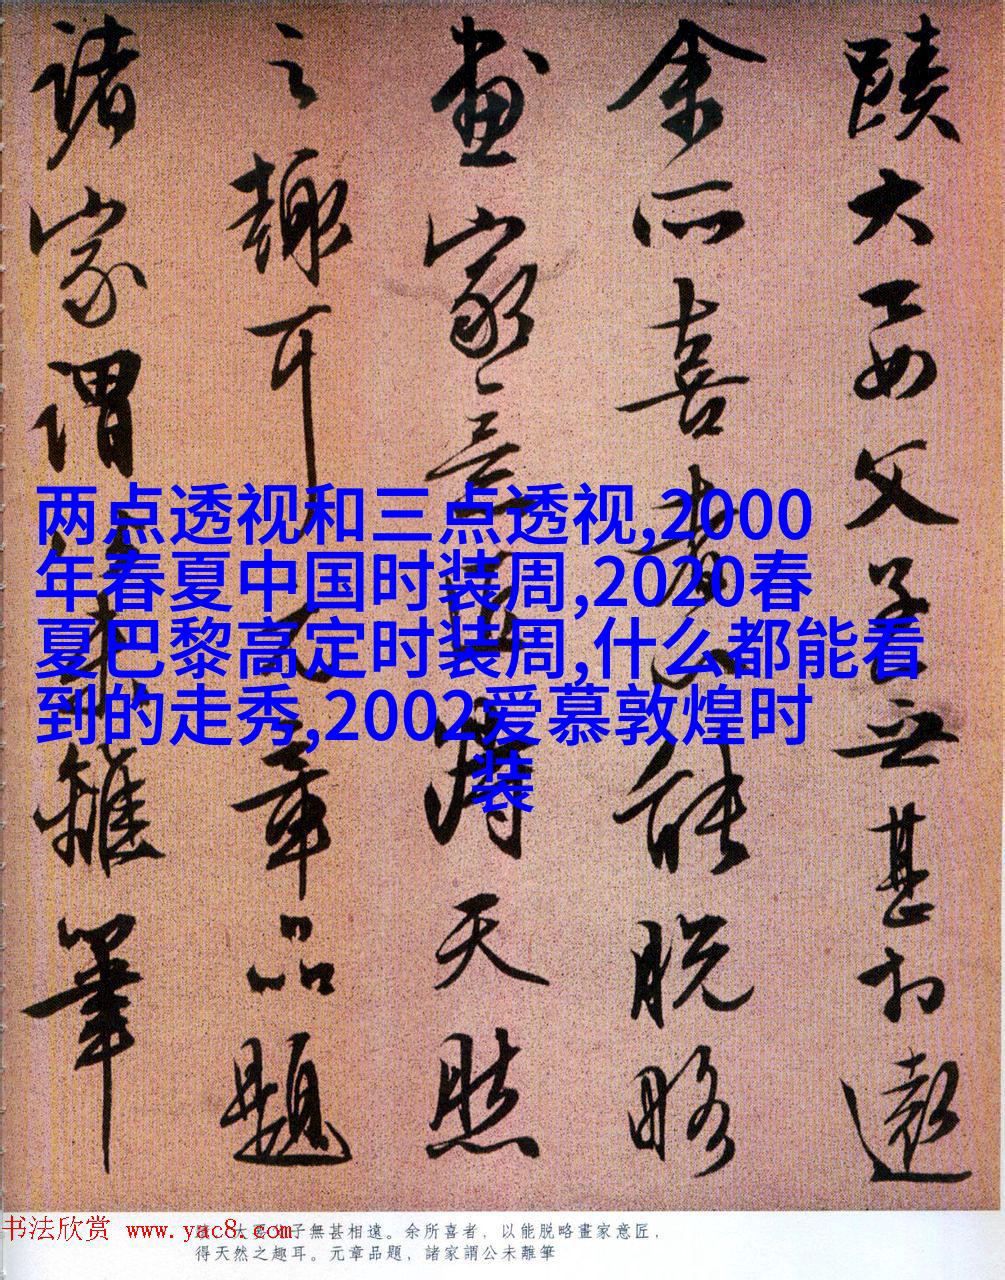 蹟大要父子無甚相遠
余所喜者以能脱略
畫家意匠得天然
之趣耳元章品題
諸家謂公未離筆
两点透视和三点透视,2000
年春夏中国时装周,2020春
夏巴黎高定时装周,什么都能看
到的走秀,2002爱慕敦煌时
装
书法欣赏 www.yac8.com
蹟，大要父子無甚相遠。余所喜者，以能脱略畫家意匠，
得天然之趣耳。元章品題，諸家謂公未離筆